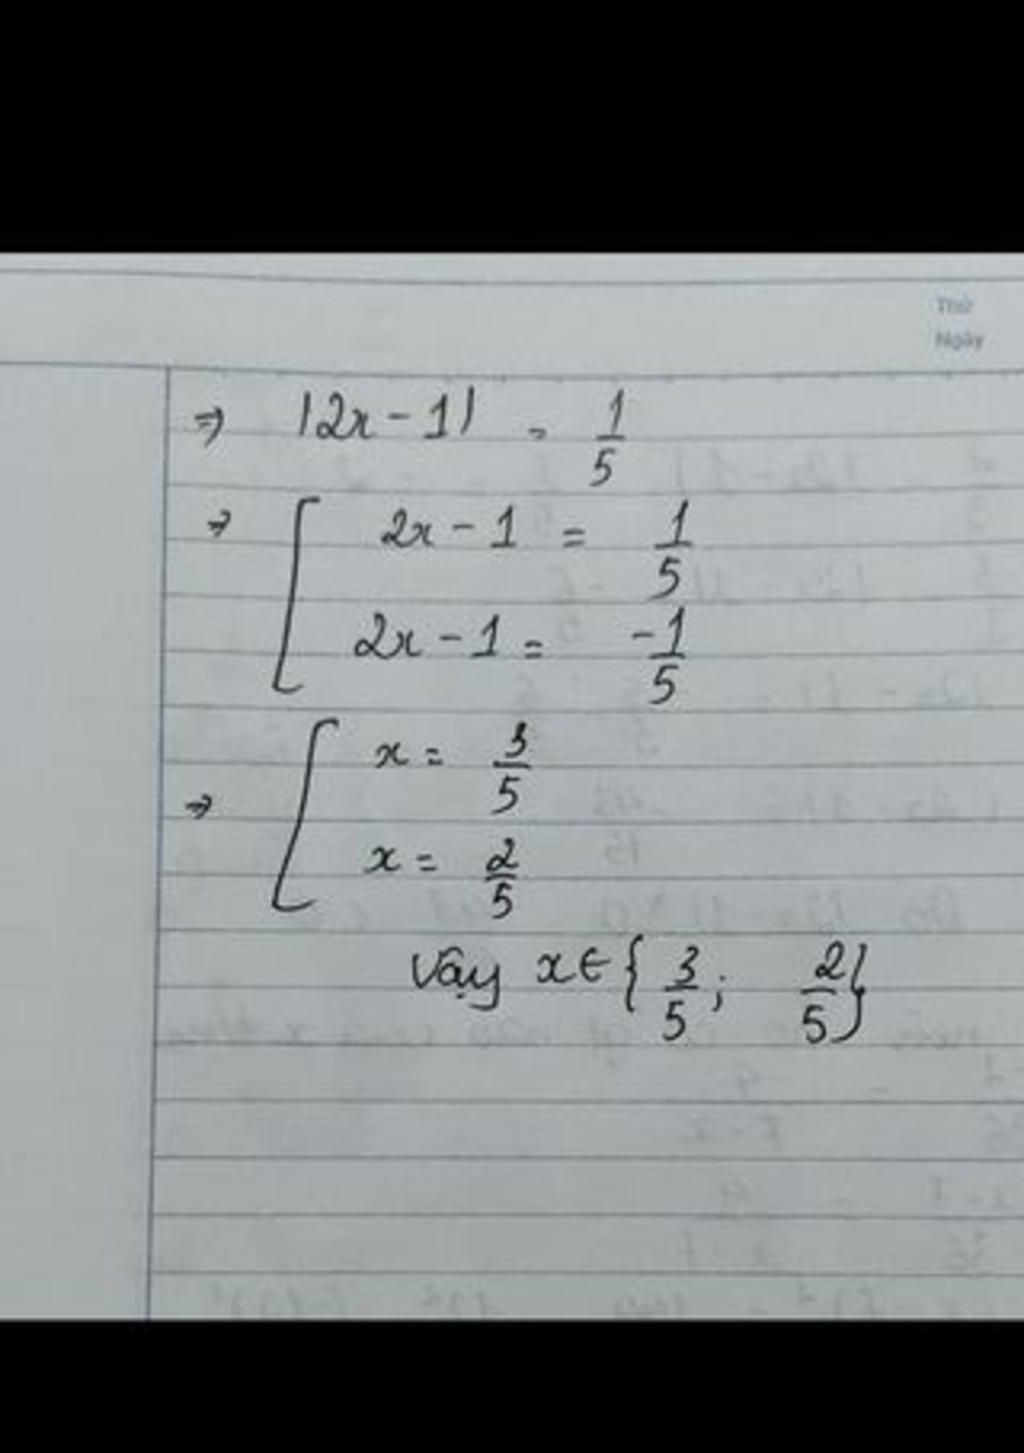 Thứ
Ngày
=> |2x - 1| = 1/5
=> [ 2x - 1 = 1/5
2x - 1 = -1/5
=> [ x = 3/5
x = 2/5
Vậy x ∈ { 3/5 ; 2/5 }